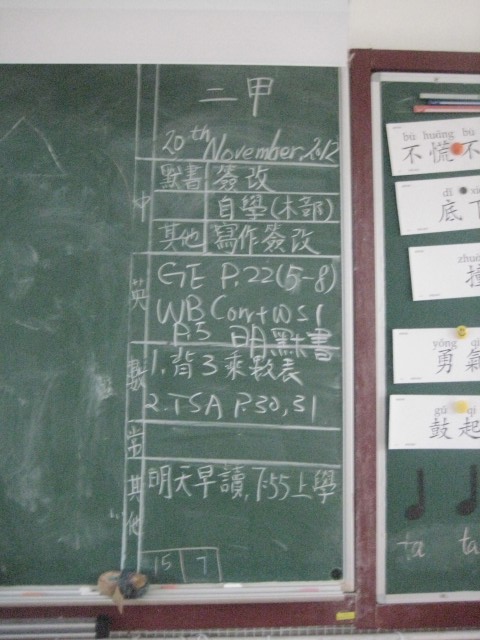 二甲
20th November, 2012
中
默書 簽改
自學(木部)
其他 寫作簽改
英
GE P.22(5-8)
WB Con+WS1
P.5 明默書
數
1. 背3乘數表
2. TSA P.30,31
常
其他
明天早讀,7:55上學
15 7
bù huāng bù
不慌不
dǐ
底下
zhuàng
撞
yǒng qì
勇氣
gǔ qǐ
鼓起
ta ta